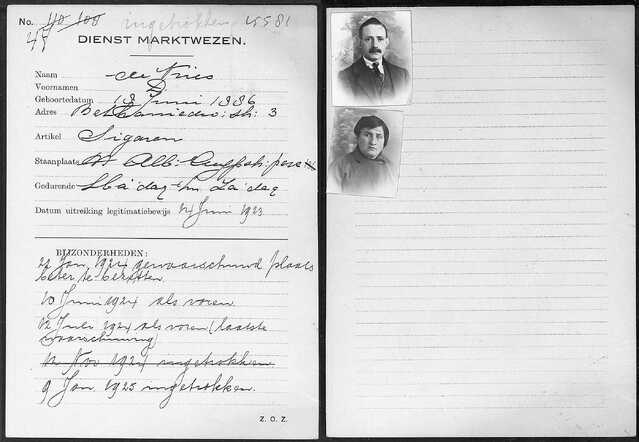 No. 110-100 ingetrokken 4581
47
DIENST MARKTWEZEN.
Naam de Vries
Voornamen D
Geboortedatum 18 Juni 1886
Adres Bethaniedw: str: 3
Artikel Sigaren
Staanplaats Alb: Cuypstr:
Gedurende Ma'dag t/m Za'dag
Datum uitreiking legitimatiebewijs 24 Juni 1923
BIJZONDERHEDEN:
22 Jan, 1924 gewaarschuwd plaats
beter te bezetten
20 Juni 1924 als voren
12 Juli 1924 als voren (laatste
waarschuwing)
12 Nov 1924 ingetrokken
9 Jan. 1925 ingetrokken.
Z. O. Z.